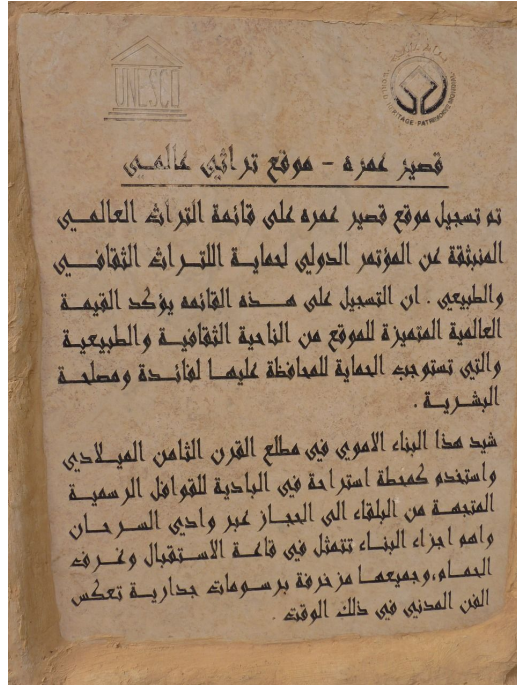 UNESCO
HERITAGE · PATRIMOINE
قصير عمره - موقع تراثي عالمي
تم تسجيل موقع قصير عمره على قائمة التراث العالمي
المنبثقة عن المؤتمر الدولي لحماية اللتراث الثقافي
والطبيعي . ان التسجيل على هذه القائمه يؤكد القيمة
العالمية المتميزة للموقع من الناحية الثقافية والطبيعية
والتي تستوجب الحماية للمحافظة عليها لفائدة ومصلحة
البشرية .
شيد هذا البناء الاموي في مطلع القرن الثامن الميلادي
واستخدم كمحطة استراحة في البادية للقوافل الرسمية
المتجهة من البلقاء الى الحجاز عبر وادي السرحان
واهم اجزاء البناء تتمثل في قاعة الاستقبال وغرف
الحمام،وجميعها مزخرفة برسومات جدارية تعكس
الفن المدني في ذلك الوقت .